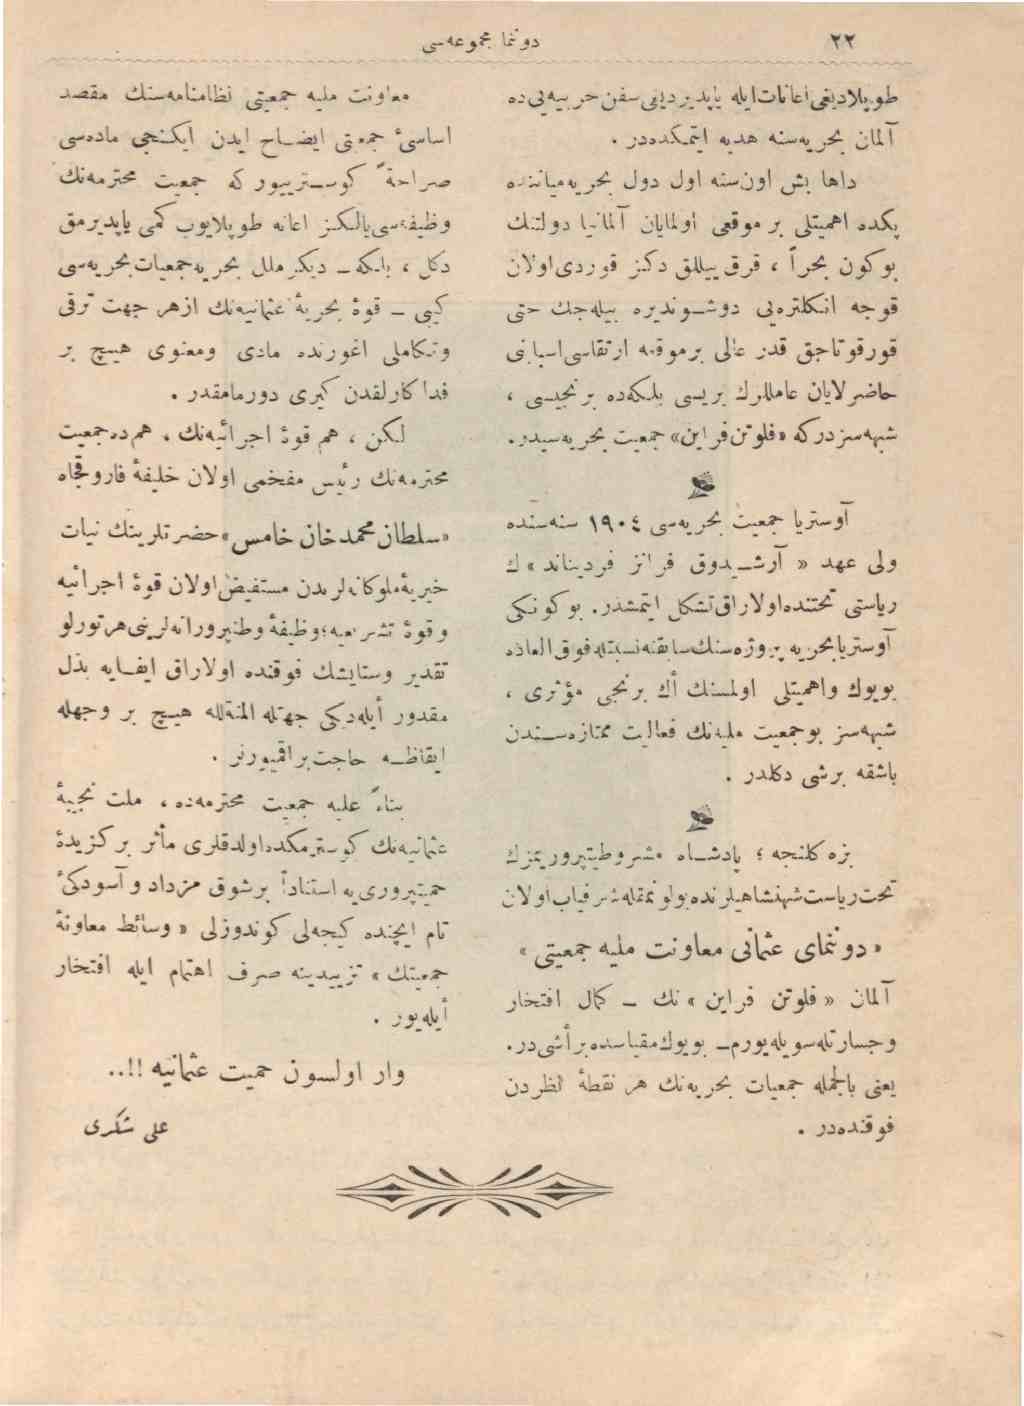 ٢٢
دوننما مجموعه‌سی
طوپلادیغی اعانات ایله یاپدیردیغی سفن حربیه‌یی ده
آلمان بحریه‌سنه هدیه ایتمکده‌در .
داها بش اون سنه اول دول بحریه میاننده
پکده اهمیتلی بر موقعی اولمایان آلمانیا دولتنك
بوکون بحراً ، قرق ییللق دکز قوردی اولان
قوجه انکلتره‌یی دوشوندیره بیله‌جك حتی
قورقوتاجق قدر عالی بر موقعه ارتقاسی اسبابنی
حاضرلایان عامللرك بریسی بلکه‌ده برنجیسی ،
شبهه‌سزدرکه «فلوتن فراین» جمعیت بحریه‌سیدر.
آوستریا جمعیت بحریه‌سی ١٩٠٤ سنه‌سنده
ولی عهد « آرشیدوق فرانز فردیناند » ك
ریاستی تحتنده اولاراق تشکل ایتمشدر. بوکونکی
آوستریا بحریه پروژه‌سنك سابقنه نسبتله فوق العاده
بویوك واهمیتلی اولمسنك أك برنجی مؤثری ،
شبهه‌سز بوجمعیت ملیه‌نك فعالیت ممتازه‌سندن
باشقه برشی دکلدر .
بزه کلنجه ؛ پادشاه مشروطیتپروریمزك
تحت ریاست شهنشاهیلرنده بولونمقله شرفیاب اولان
« دوننمای عثمانی معاونت ملیه جمعیتی »
آلمان « فلوتن فراین » نك – کمال افتخار
وجسارتله سویله‌یورم – بویوك مقیاسده بر أشی در.
یعنی بالجمله جمعیات بحریه‌نك هر نقطهٔ نظردن
فوقنده‌در .
معاونت ملیه جمعیتی نظامنامه‌سنك مقصد
اساسیٔ جمعیتی ایضاح ایدن ایکنجی ماده‌سی
صراحةً کوستریپور که جمعیت محترمه‌نك
وظیفه‌سی یالکز اعانه طوپلایوب کمی یاپدیرمق
دکل ، بلکه – دیکر ملل بحریه جمعیات بحریه‌سی
کیبی – قوهٔ بحریهٔ عثمانیه‌نك از هر جهت ترقی
وتکاملی اغورنده مادی ومعنوی هیچ بر
فداکارلقدن کیری دورمامقدر .
لکن ، هم قوهٔ اجرائیه‌نك ، هم ده جمعیت
محترمه‌نك رئیس مفخمی اولان خلیفهٔ فاروقجاه
«سلطان محمد خان خامس» حضرتلرینك نیات
خیریهٔ ملوکانه‌لرندن مستفیض اولان قوهٔ اجرائیه
وقوهٔ تشریعیه؛ وظیفهٔ وطنپرورانه‌لرینی هرتورلو
تقدیر وستایشك فوقنده اولاراق ایفایه بذل
مقدور أیله‌دیکی جهتله المنةلله هیچ بر وجهله
ایقاظه حاجت براقمیورلر .
بناءً علیه جمعیت محترمه‌ده ، ملت نجیبهٔ
عثمانیه‌نك کوسترمکده اولدقلری مآثر برکزیدهٔ
حمیتپروری‌یه استناداً برشوق مزداد و آسودکیٔ
تام ایچنده کیجه‌لی کوندوزلی « وسائط معاونهٔ
جمعیتك » تزییدینه صرف اهتمام ایله افتخار
أیله‌یور .
وار اولسون حمیت عثمانیه !!..
علی شکری